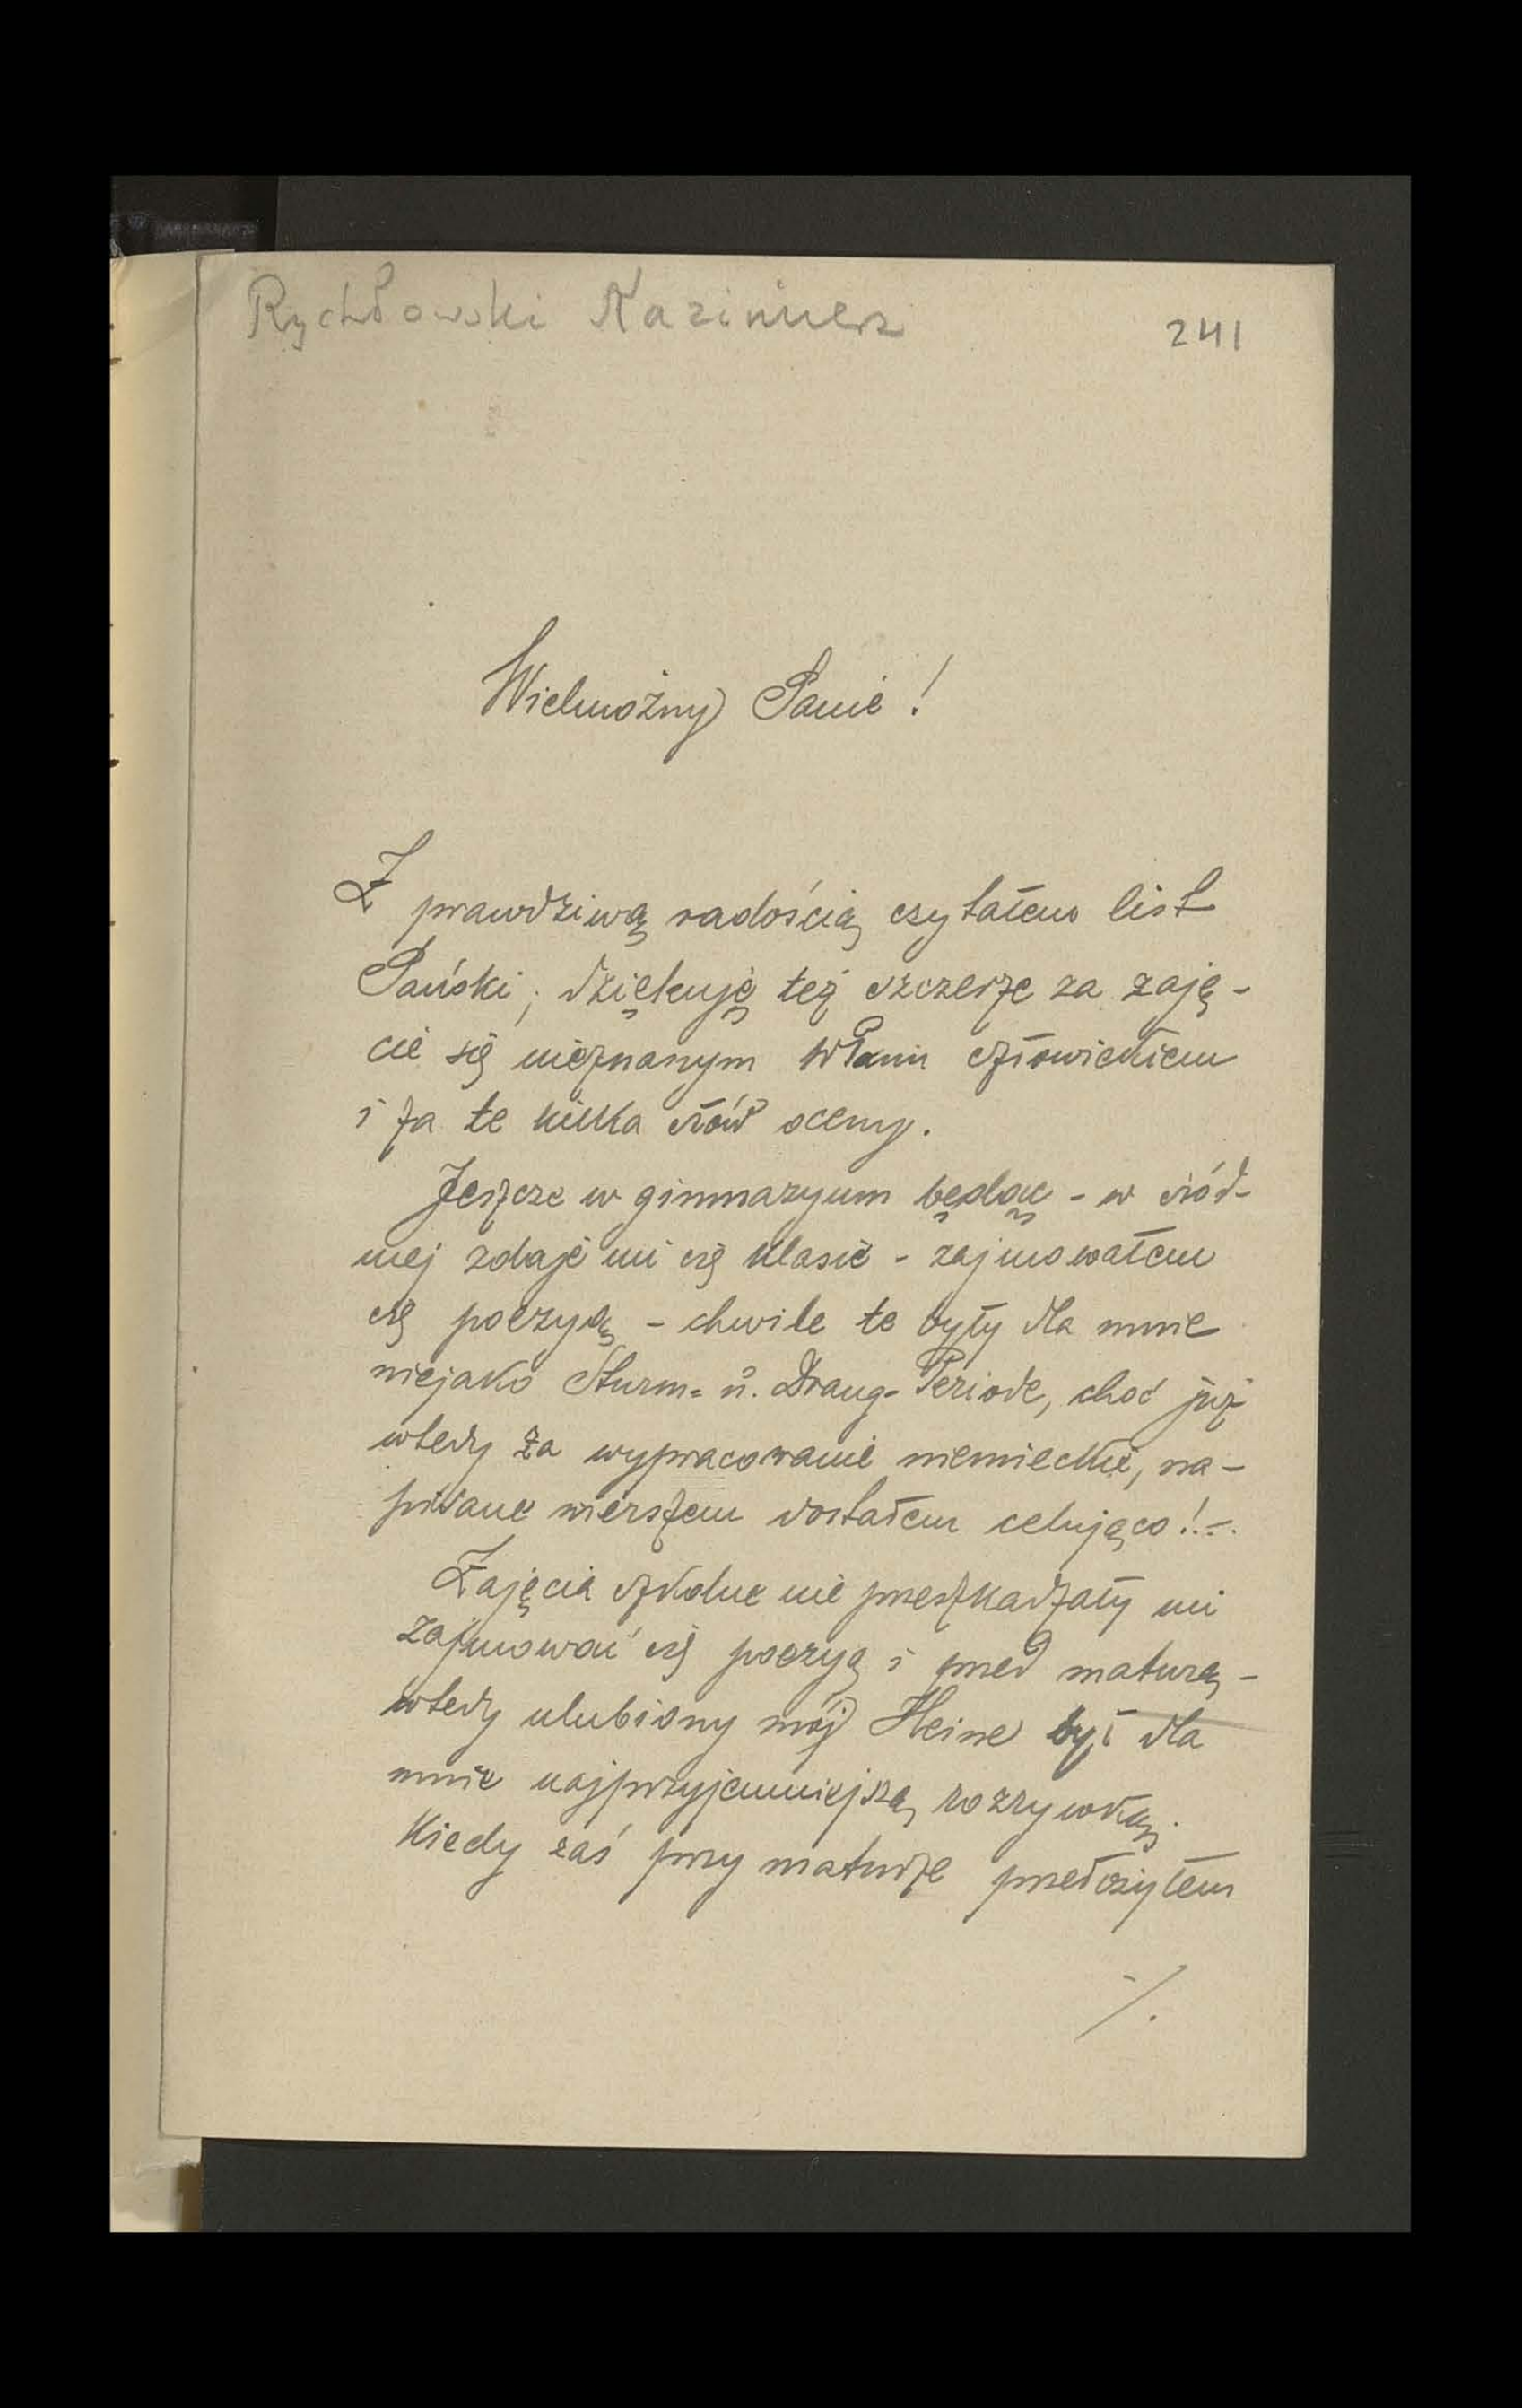 Rychłowski Kazimierz
241
Wielmożny Panie!
Z prawdziwą radością czytałem list
Pański; dziękuję też szczerze za zaję-
cie się nieznanym WPanu człowiekiem
i za te kilka słów oceny.
Jeszcze w gimnazyum będąc - w siód-
mej zdaje mi się klasie - zajmowałem
się poezyą - chwile te były dla mnie
niejako Sturm= ŭ. Drang-Periode, choć już
wtedy za wypracowanie niemieckie, na-
pisane wierszem dostałem celująco! -.
Zajęcia szkolne nie przeszkadzały mi
zajmować się poezyą i przed maturą -
wtedy ulubiony mój Heine był dla
mnie najprzyjemniejszą rozrywką.
Kiedy zaś przy maturze przełożyłem
./.